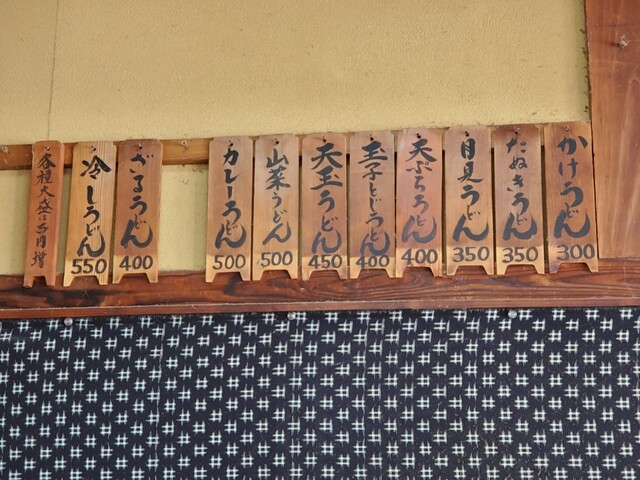 かけうどん
300
たぬきうどん
350
月見うどん
350
天ぷらうどん
400
玉子とじうどん
400
天玉うどん
450
山菜うどん
500
カレーうどん
500
ざるうどん
400
冷しうどん
550
各種大盛は百円増